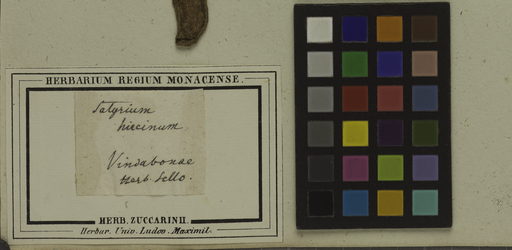 HERBARIUM REGIUM MONACENSE.
Satyrium
hircinum
Vindabonae
Herb. Sello.
HERB. ZUCCARINII.
Herbar. Univ. Ludov. Maximil.